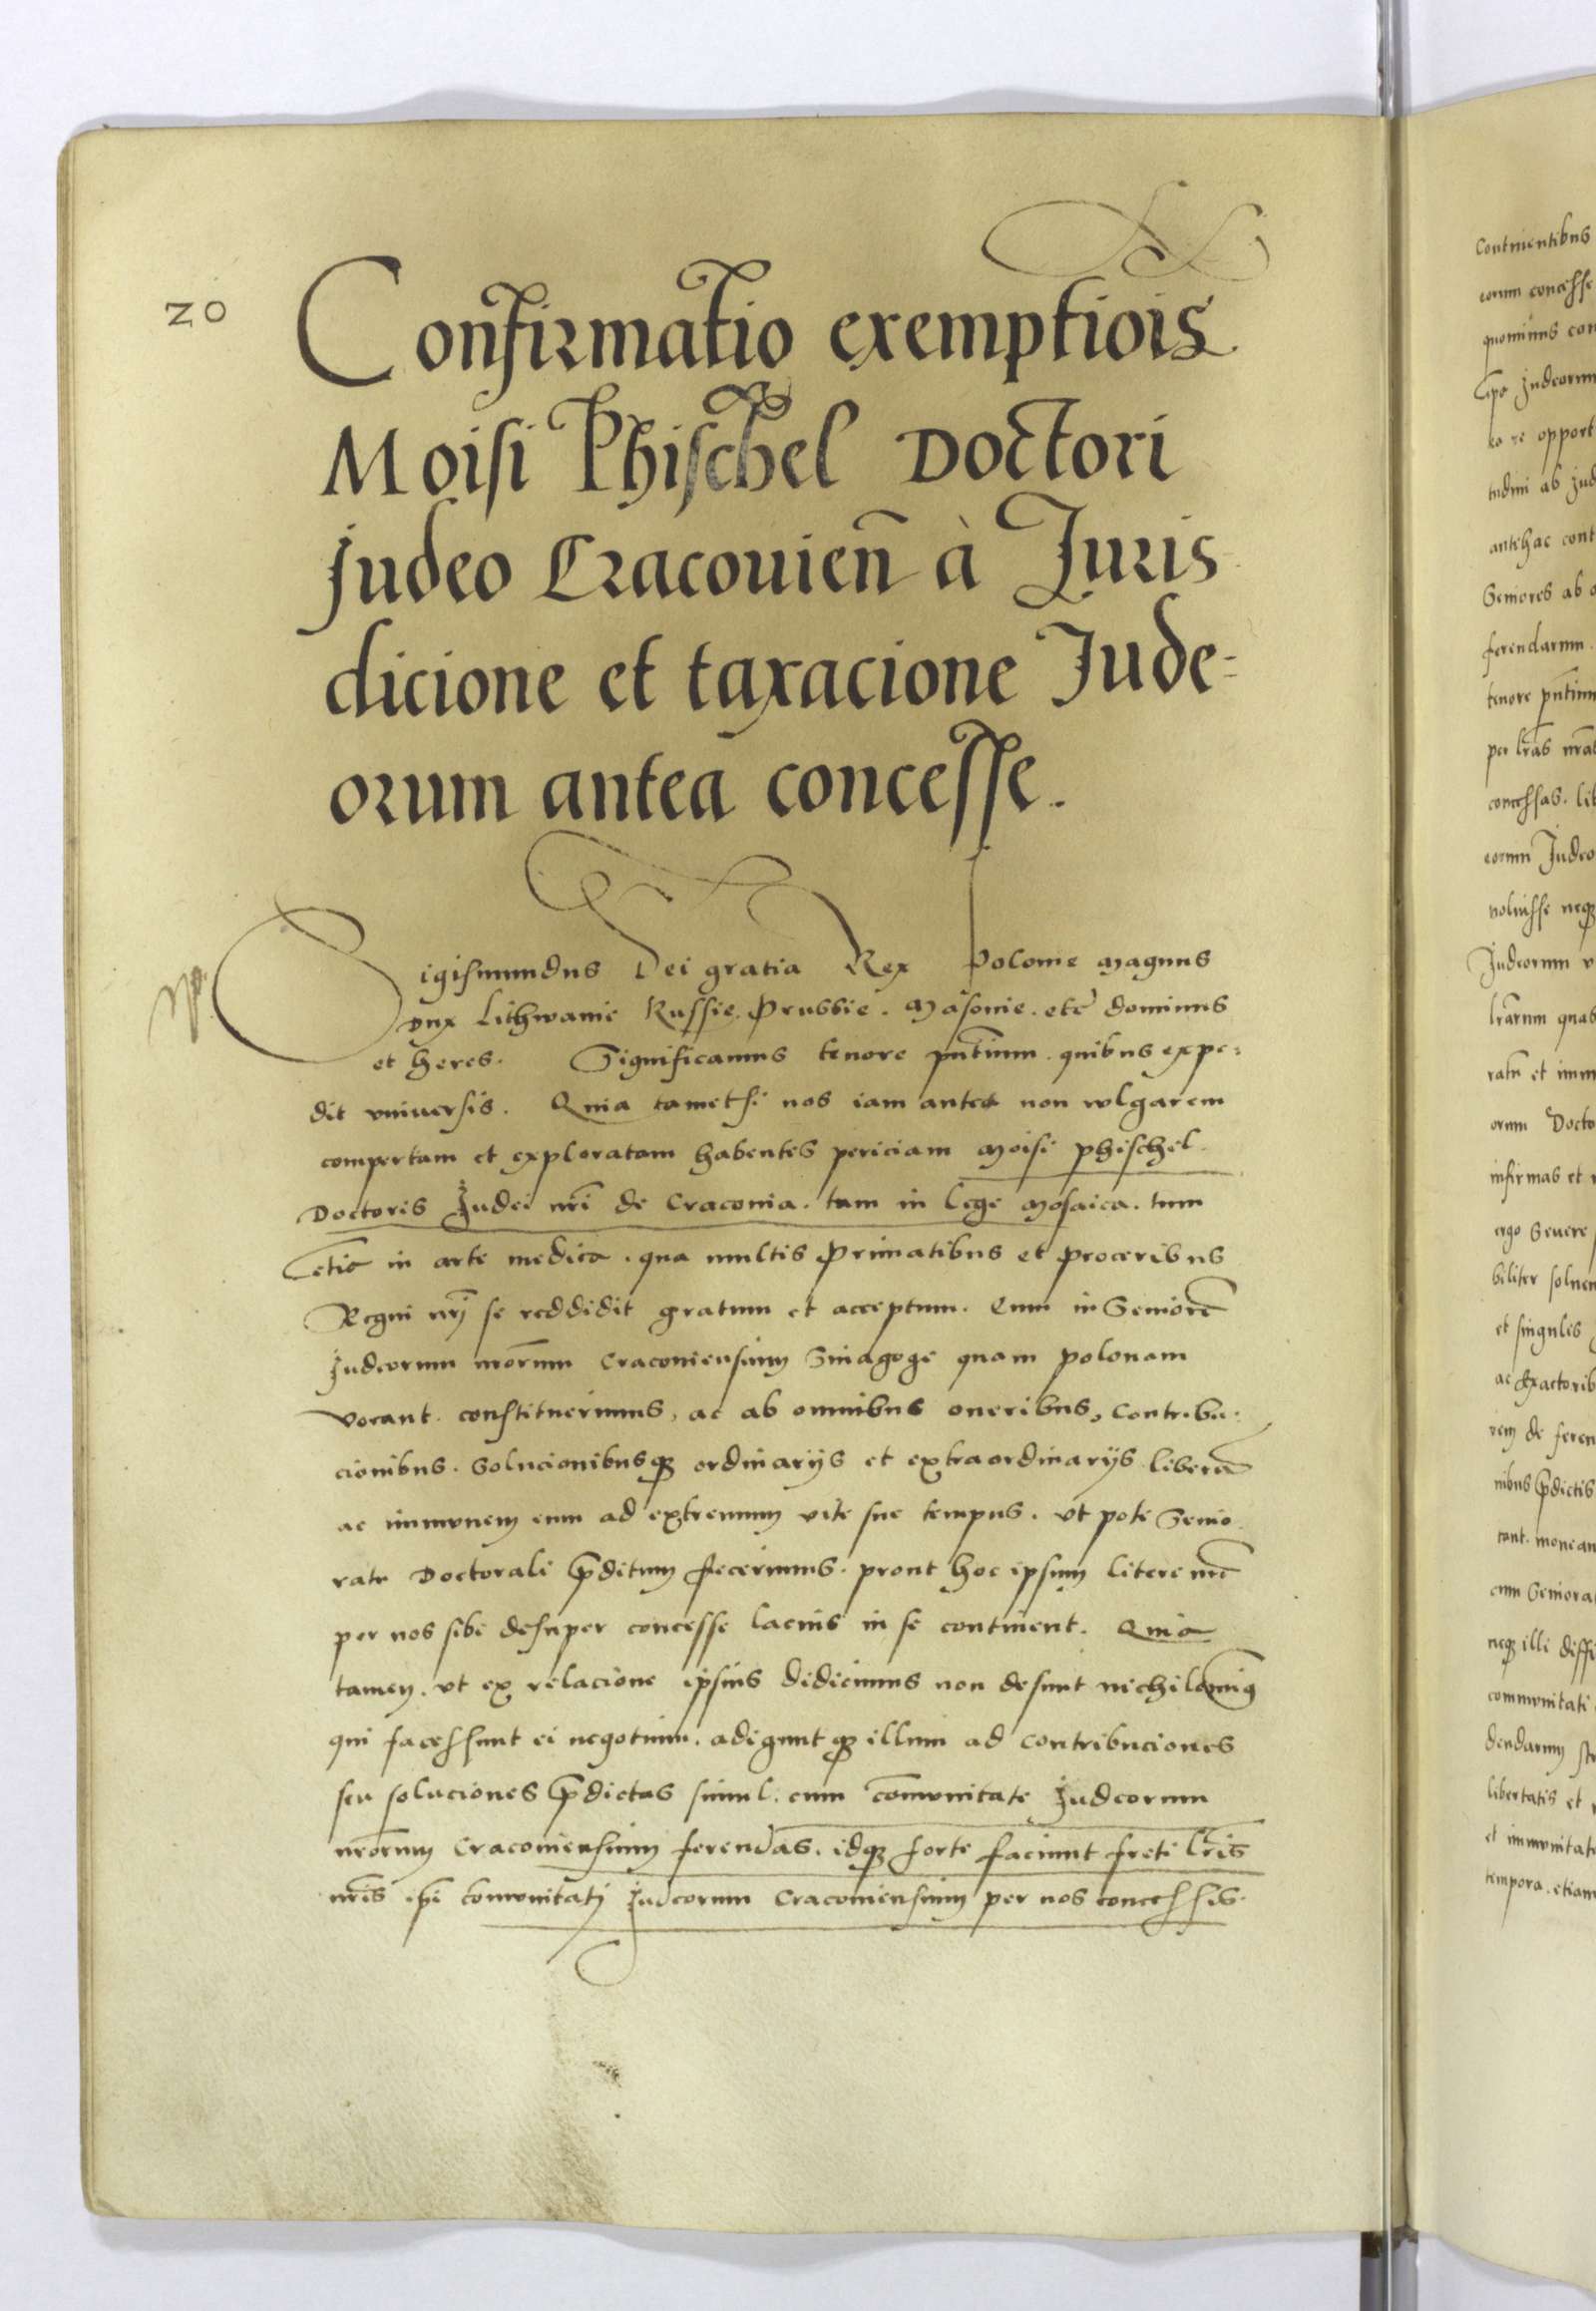 20
Confirmatio exemptiois
Moisi Phischel Doctori
Judeo Cracouień à Juris
dicione et taxacione Jude=
orum antea concesse.
Sigismundus Dei gratia Rex Polonie Magnus
Dux Lithwanie Russie. Prussie. Masouie. etc̃ dominus
et heres. Significamus tenore pñtium. quibus expe=
dit vniuersis. Quia tametsi nos iam antea non wlgarem
compertam et exploratam habentes periciam Moisi phischel
Doctoris Judei nr̃i de Cracouia. tam in lege Mosaica. tum
etiã in arte medica. qua multis Primatibus et proceribus
Regni nr̃j se reddidit gratum et acceptum. Eum in Seniorẽ
Judeorum nr̃orum Cracouiensium Sinagoge quam polonam
vocant. constituerimus, ac ab omnibus oneribus, Contribu-
cionibus. Solucionibusqꝫ ordinarijs et extraordinarijs liberũ
ac immunem eum ad extremum vite sue tempus. vt pote Senio
ratu Doctorali p̃ditum fecerimus. prout hoc ipsum litere nr̃e
per nos sibi desuper concesse lacius in se continent. Quia
tamen. vt ex relacione ipsius didicimus non desunt nichilominꝰ
qui facessunt ei negotium. adiguntqꝫ illum ad contribuciones
seu soluciones p̃dictas simul. cum com̃vnitate Judeorum
nr̃orum Cracouiensium ferendas. idqꝫ forte faciunt freti lr̃is
nr̃is ip̃i comvnitatj Judeorum Cracouiensium per nos concessis.
Continentibus
eorum concesse
quominus con
ip̃o Judeorum
ea re opport
tudini ab jud
antehac cont
Seniores ab o
ferendarum.
tenore pñtium
per lr̃as nr̃as
concessas. lib
eorum Judeo
voluisse neqꝫ
Judeorum v
lr̃arum quas
ratũ et imm
orum Docto
infirmas et
ergo Seuere
biliter soluen
et singulis
ac Exactorib
rem de feren
nibus p̃dictis
tant. monean
cum Seniora
neqꝫ illi diffi
commvnitati
dendarum
libertatis et
et immvnitati
tempora. etiam